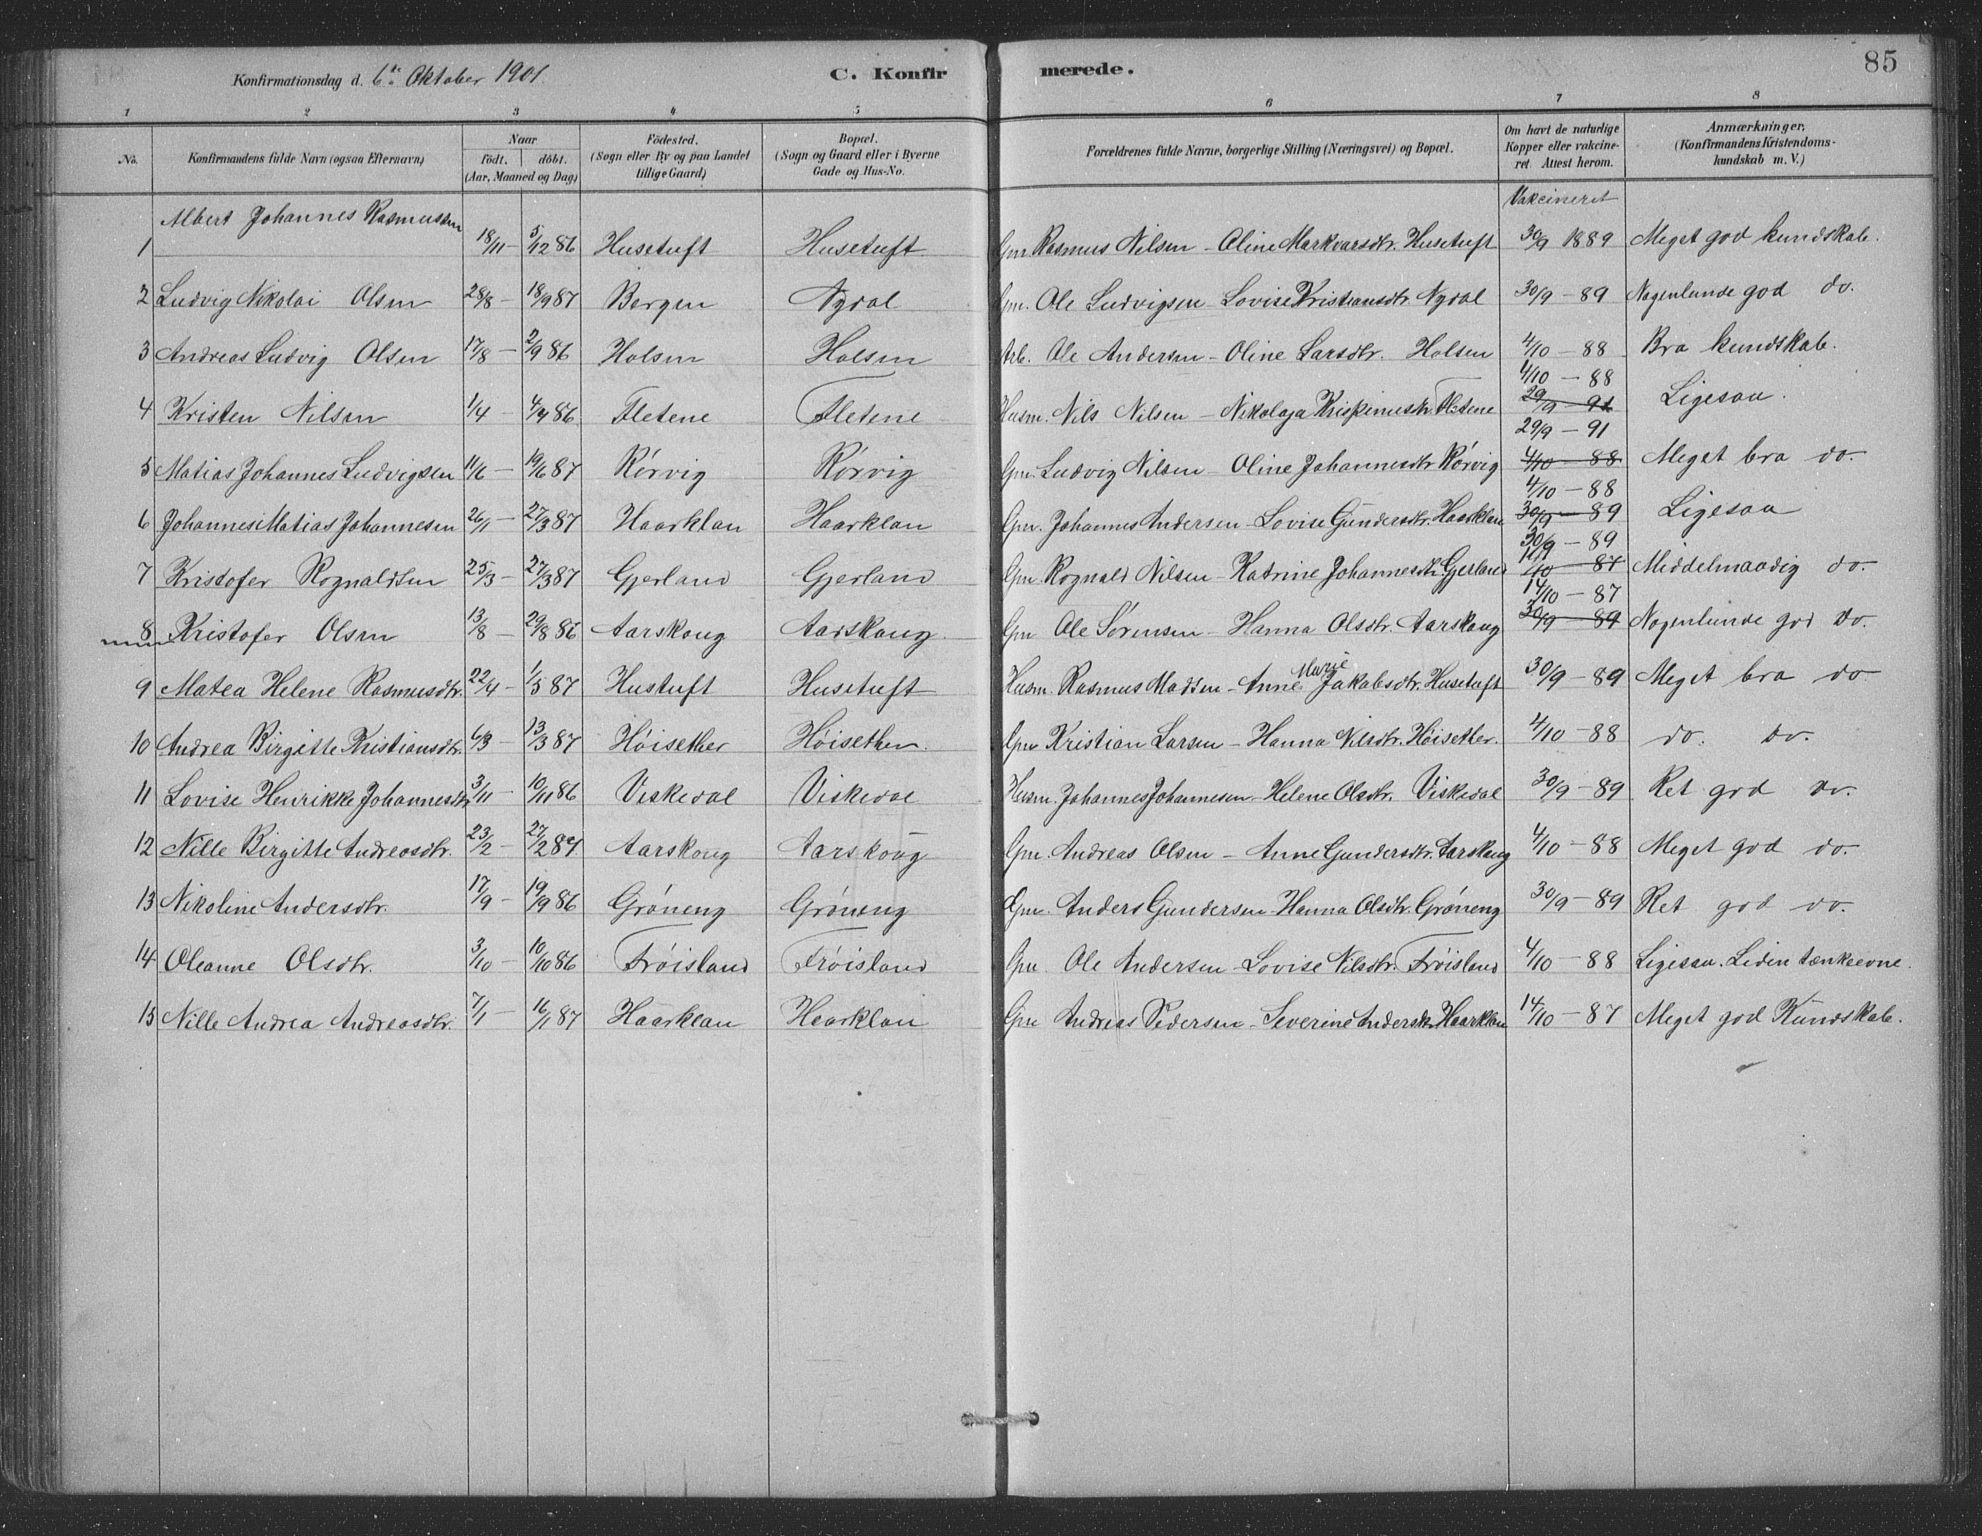 Konfirmationsdag d. 6te Oktober 1901. C. Konfir merede. 85
1 2 3 4 5 6 7 8
No. Konfirmandens fulde Navn (ogsaa Efternavn) Naar Födt. döbt. (Aar, Maaned og Dag) Födested. (Sogn eller By og paa Landet tillige Gaard) Bopæl. (Sogn og Gaard eller i Byerne Gade og Hus-No. Forældrenes fulde Navne, borgerlige Stilling (Næringsvei) og Bopæl. Om havt de naturlige Kopper eller vakcineret Attest herom. Anmærkninger. (Konfirmandens Kristendomskundskab m. V.)
Vakcineret
1 Albert Johannes Rasmussen 18/11 – 5/12 86 Husetuft Husetuft Gm. Rasmus Nilsen – Oline Markvarsdtr. Husetuft 30/9 1889 Meget god kundskab.
2 Ludvig Nikolai Olsen 28/8 – 18/9 87 Bergen Nydal Gm. Ole Ludvigsen – Lovise Kristiansdtr. Nydal 30/9 – 89 Nogenlunde god do.
3 Andreas Ludvig Olsen 17/8 – 2/9 86 Holsen Holsen Arb. Ole Andersen – Oline Larsdtr. Holsen 4/10 – 88 Bra kundskab.
4 Kristen Nilsen 1/4 – 4/4 86 Fletene Fletene Husm. Nils Nilsen – Nikolaja Fletene 4/10 – 88 29/9 – 91 Ligesaa.
5 Matias Johannes Ludvigsen 11/6 – 19/6 87 Rørvig Rørvig Gm. Ludvig Nilsen – Oline Johannesdtr Rørvig 29/9 – 91 4/10 – 88 Meget bra do.
6 Johannes Matias Johannesen 26/1 – 27/3 87 Haarklau Haarklau Gm. Johannes Andersen – Lovise Gundersdtr. Haarklau 4/10 – 88 30/9 – 89 Ligesaa
7 Kristofer Rognaldsen 25/3 – 27/3 87 Gjerland Gjerland Gm. Rognald Nilsen – Katrine Johannesdtr. Gjerland 30/9 – 89 14/10 – 87 Middelmaadig do.
8 Kristofer Olsen 13/8 – 29/8 86 Aarskoug Aarskoug. Gm Ole Sørensen – Hanna Olsdtr. Aarskoug 14/10 – 87 30/9 – 89 Nogenlunde god do.
9 Matea Helene Rasmusdtr. 22/4 – 1/5 87 Hustuft Husetuft Husm. Rasmus Madsen – Anne Marie Jakobsdtr. Husetuft 30/9 – 89 Meget bra do
10 Andrea Birgitte Kristiansdtr. 6/3 – 13/3 87 Høisether Høisether. Gm Kristian Larsen – Hanna Nilsdtr. Høisether. 4/10 – 88 do. do.
11 Lovise Henrikke Johannesdtr 3/11 – 10/11 86 Viskedal Viskedal Husm. Johannes Johannesen – Helene Olsdtr. Viskedal 30/9 – 89 Ret god do.
12 Nille Birgitte Andreasdtr. 23/2 – 27/2 87. Aarskoug Aarskoug Gm. Andreas Olsen – Anne Gundersdtr. Aarskoug 4/10 – 88 Meget god do.
13 Nikoline Andersdtr. 17/9 – 19/9 86 Grøneng Grøneng Gm. Anders Gundersen – Hanna Olsdtr. Grøneng 30/9 – 89 Ret god do.
14 Oleanne Olsdtr. 3/10 – 10/10 86 Frøisland Frøisland Gm Ole Andersen – Lovise Nilsdtr. Frøisland 4/10 – 88 Ligesaa. Liden tænkeevne.
15 Nille Andrea Andreasdtr. 7/1 – 16/1 87 Haarklau Haarklau Gm Andreas Pedersen – Severine Andersdtr Haarklau 14/10 – 87 Meget god Kundskab.